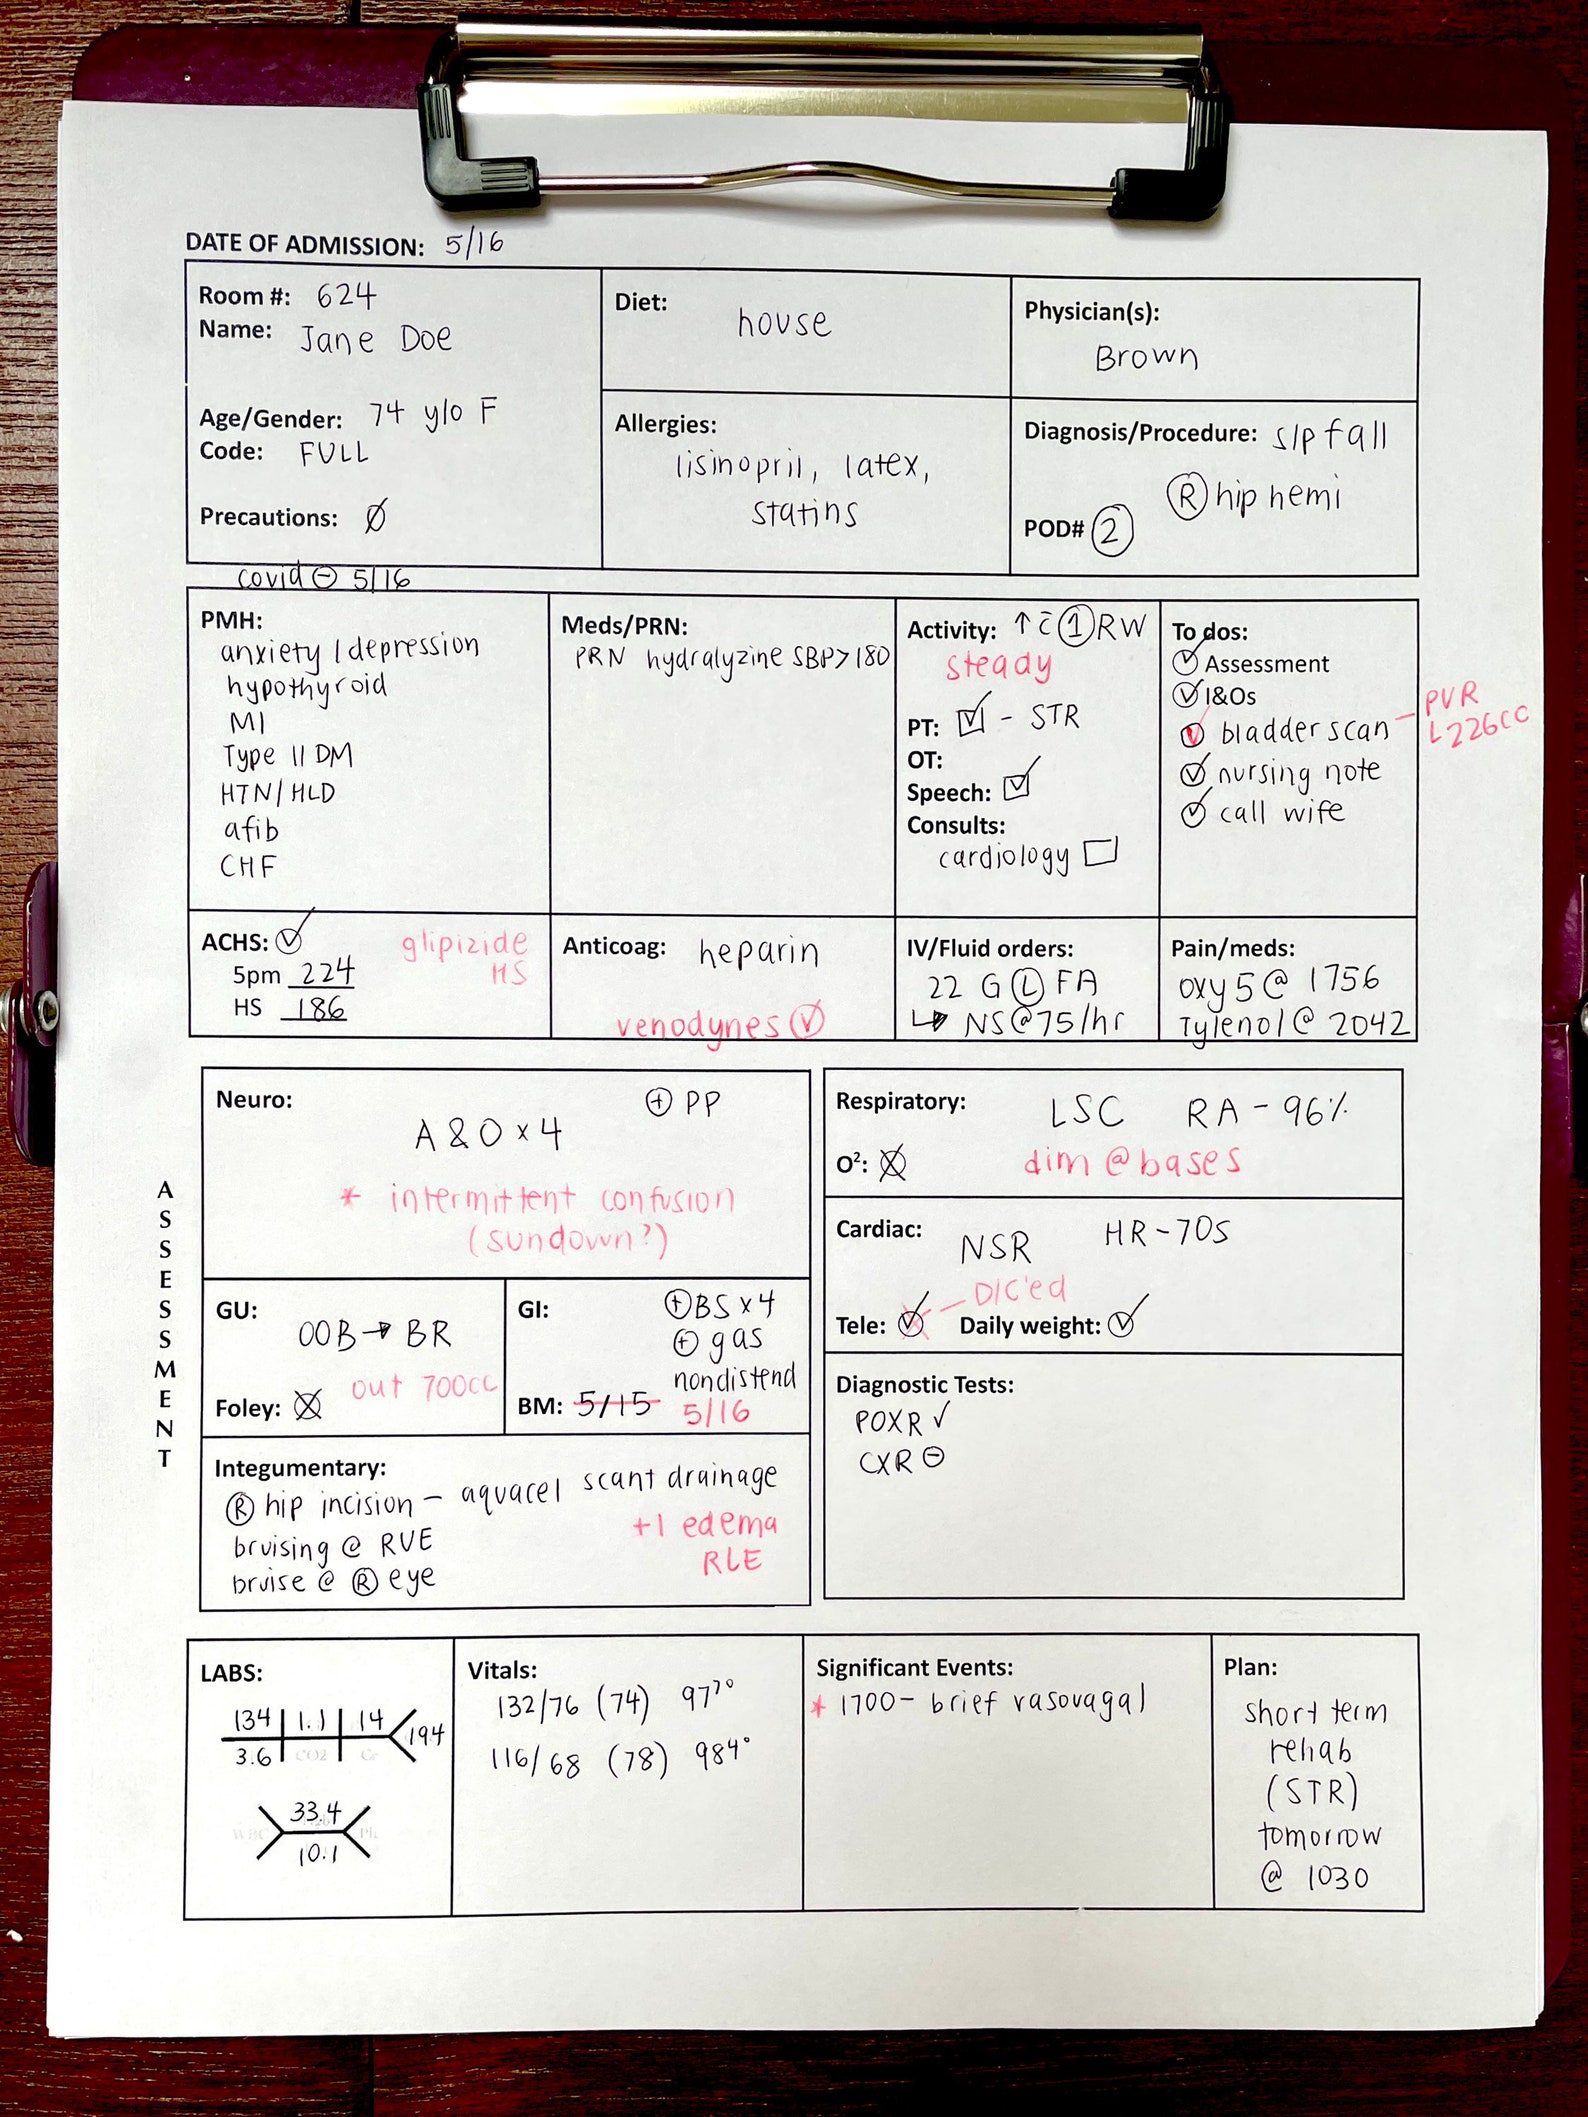 DATE OF ADMISSION: 5/16
Room #: 624
Name: Jane Doe
Age/Gender: 74 y/o F
Code: FULL
Precautions: Ø
covid ⊖ 5/16
Diet:
house
Allergies:
lisinopril, latex,
statins
Physician(s):
Brown
Diagnosis/Procedure: s/p fall
Ⓡ hip hemi
POD# ②
PMH:
anxiety / depression
hypothyroid
MI
Type II DM
HTN/HLD
afib
CHF
Meds/PRN:
PRN hydralyzine SBP>180
Activity: ↑ c̄ ① RW
steady
PT: ☑ - STR
OT:
Speech: ☑
Consults:
cardiology ☐
To dos:
✓ Assessment
✓ I&Os
✓ bladder scan - PVR
L226cc
✓ nursing note
✓ call wife
ACHS: ✓
5pm 224
HS 186
glipizide
HS
Anticoag: heparin
venodynes ✓
IV/Fluid orders:
22 G Ⓛ FA
↳ NS@75/hr
Pain/meds:
oxy 5 @ 1756
Tylenol @ 2042
ASSESSMENT
Neuro:
⊕ PP
A & O x 4
* intermittent confusion
(sundown?)
GU:
OOB → BR
out 700cc
Foley: ⊗
GI:
⊕ BS x 4
⊕ gas
nondistend
BM: 5/15 5/16
Integumentary:
Ⓡ hip incision - aquacel scant drainage
bruising @ RUE
bruise @ Ⓡ eye
+1 edema
RLE
Respiratory: LSC RA - 96%
O²: ⊗ dim @ bases
Cardiac: NSR HR - 70s
D/C'ed
Tele: ✓ Daily weight: ✓
Diagnostic Tests:
POXR ✓
CXR ⊖
LABS:
134 1.1 14
3.6 CO2 Cr 194
33.4
WBC
10.1
Vitals:
132/76 (74) 97⁷°
116/68 (78) 98⁴°
Significant Events:
* 1700 - brief vasovagal
Plan:
short term
rehab
(STR)
tomorrow
@ 1030